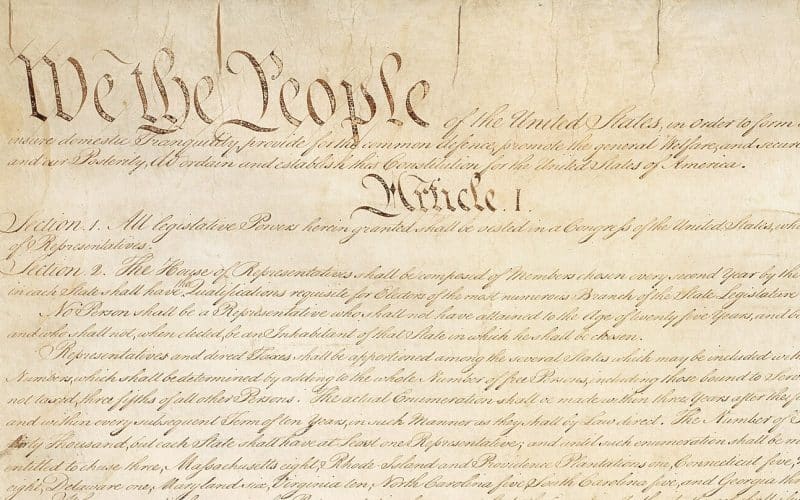 We the People of the United States, in Order to form
insure domestic Tranquility, provide for the common defence, promote the general Welfare, and secure
and our Posterity, do ordain and establish this Constitution for the United States of America.
Article. I.
Section. 1. All legislative Powers herein granted shall be vested in a Congress of the United States, wh
of Representatives.
Section. 2. The House of Representatives shall be composed of Members chosen every second Year by the
in each State shall have the Qualifications requisite for Electors of the most numerous Branch of the State Legislature
No Person shall be a Representative who shall not have attained to the Age of twenty five Years, and b
and who shall not, when elected, be an Inhabitant of that State in which he shall be chosen.
Representatives and direct Taxes shall be apportioned among the several States which may be included w
Numbers, which shall be determined by adding to the whole Number of free Persons, including those bound to Serv
not taxed, three fifths of all other Persons. The actual Enumeration shall be made within three Years after the f
and within every subsequent Term of ten Years, in such Manner as they shall by Law direct. The Number of
thirty Thousand, but each State shall have at Least one Representative; and until such enumeration shall be m
entitled to chuse three, Massachusetts eight, Rhode Island and Providence Plantations one, Connecticut five,
eight, Delaware one, Maryland six, Virginia ten, North Carolina five, South Carolina five, and Georgia th